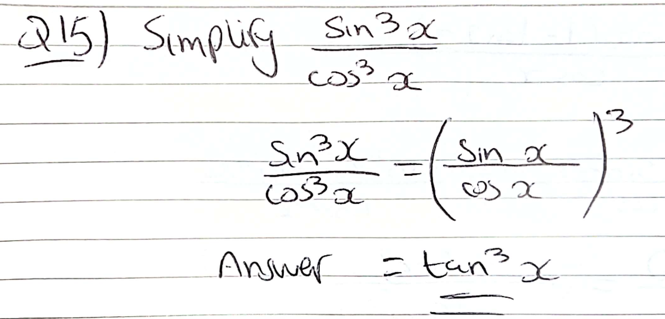 Q15) Simplify sin3x/cos³x
sin³x/cos³x = (sin x/cos x)³
Answer = tan³x